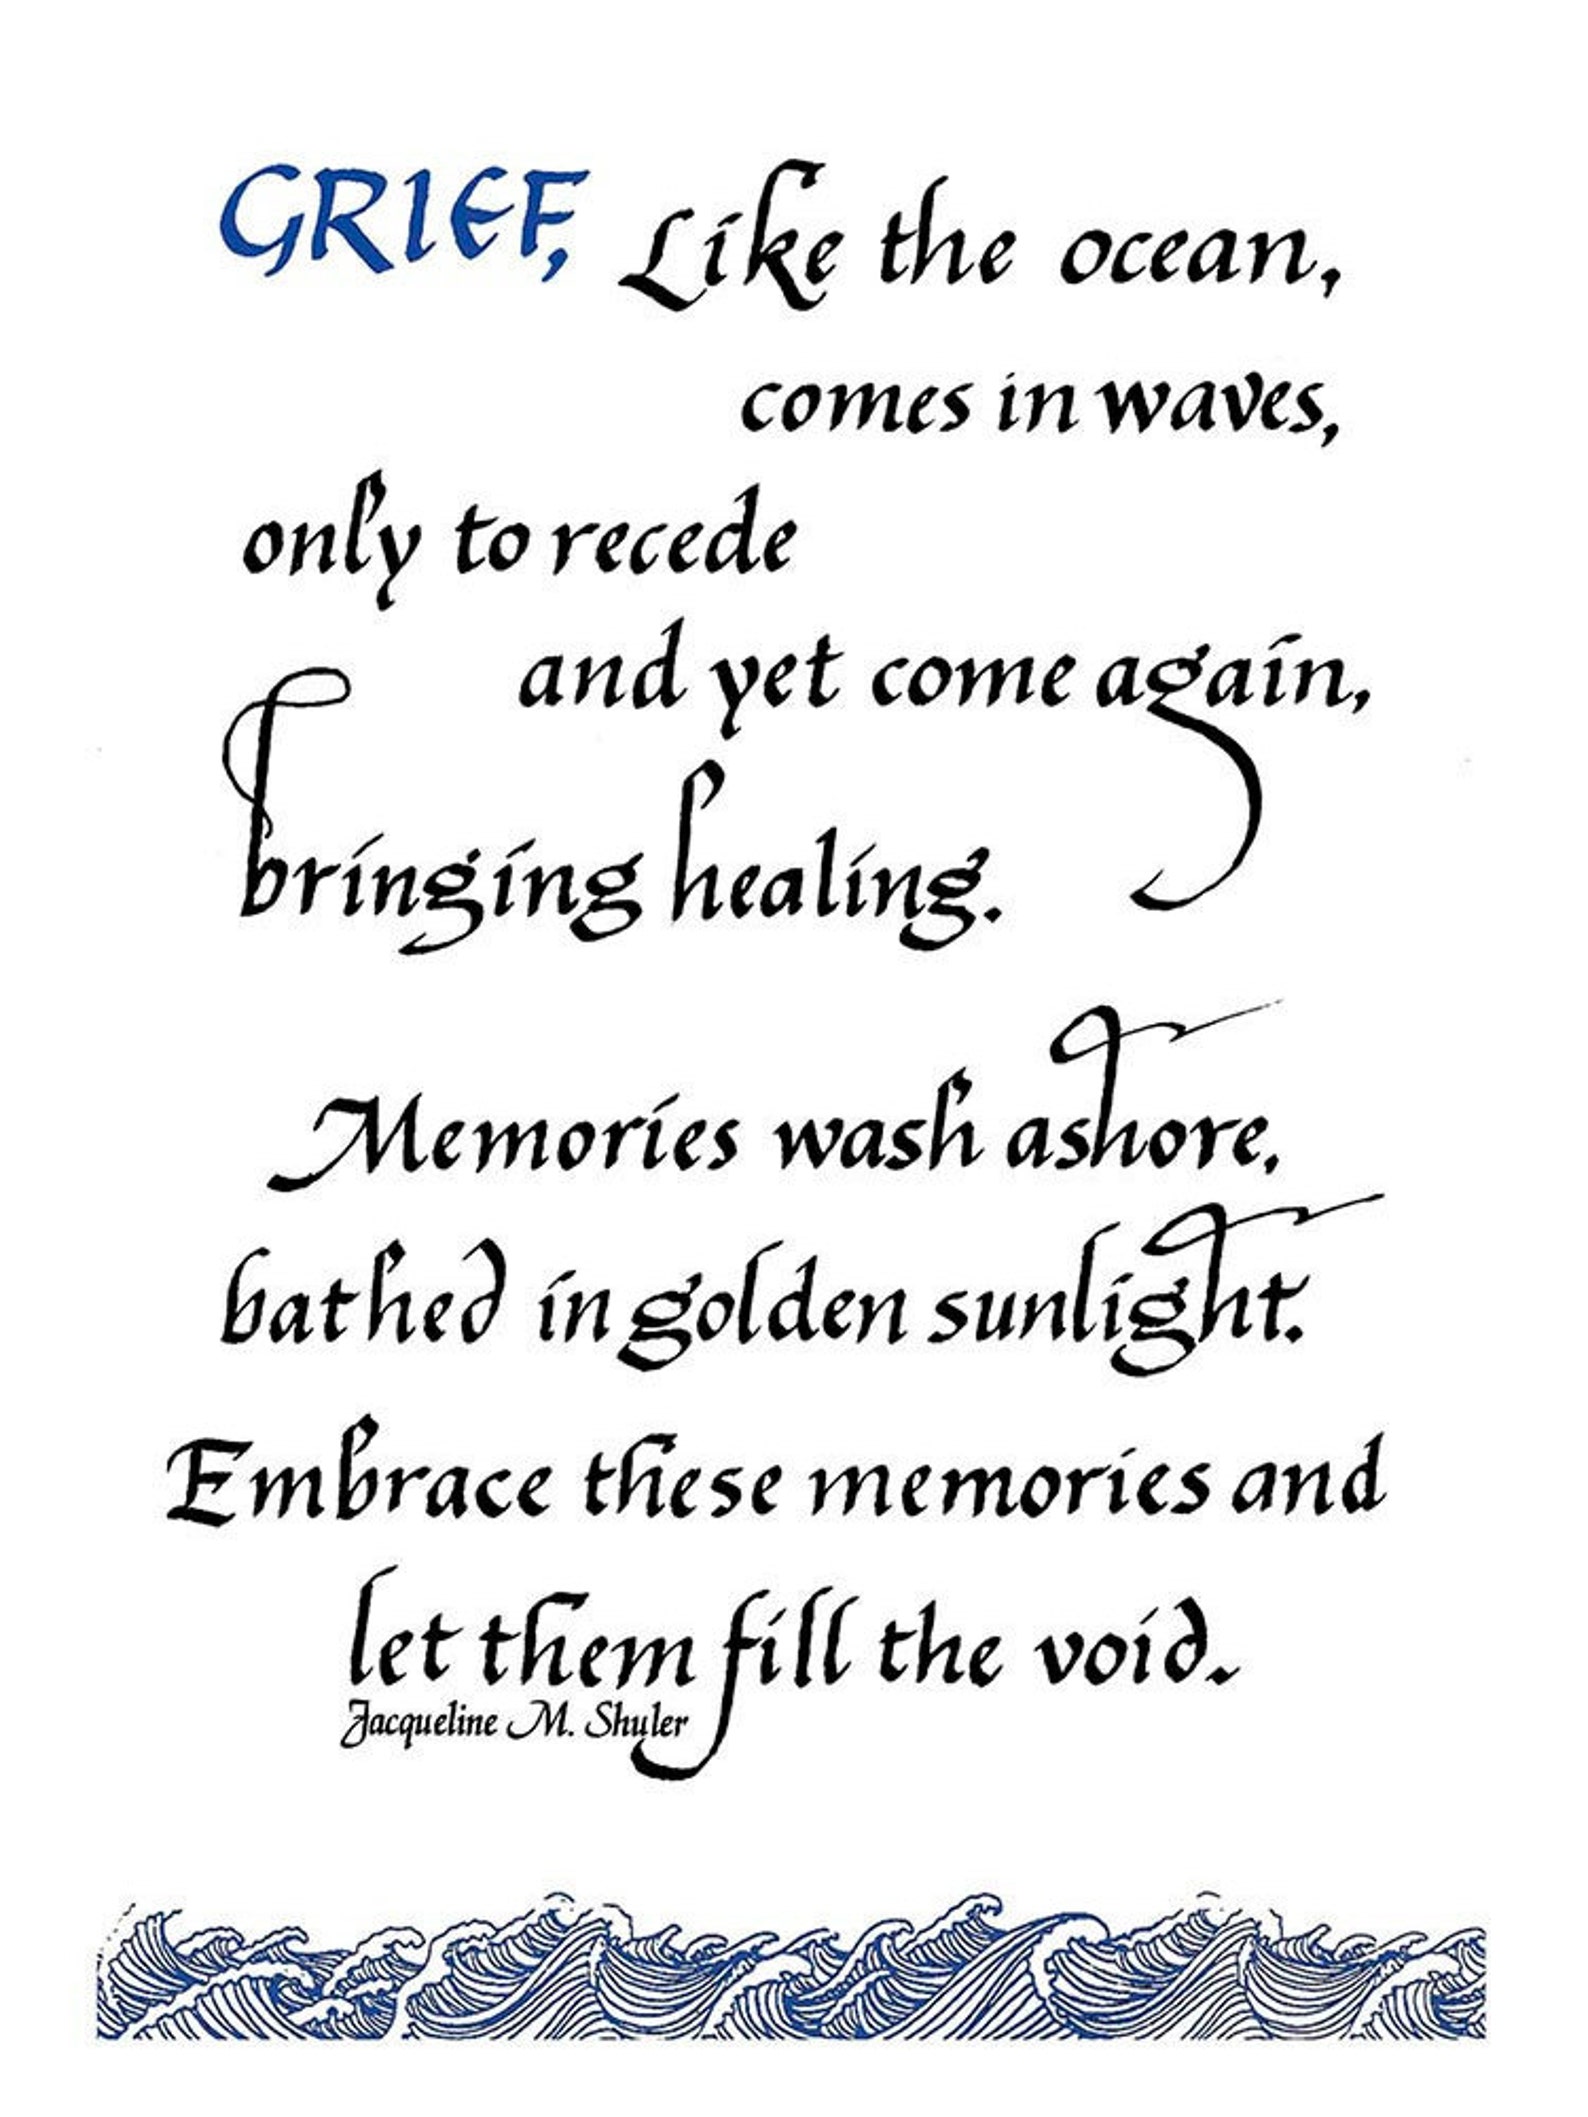 GRIEF, Like the ocean,
comes in waves,
only to recede
and yet come again,
bringing healing.
Memories wash ashore,
bathed in golden sunlight.
Embrace these memories and
let them fill the void.
Jacqueline M. Shuler